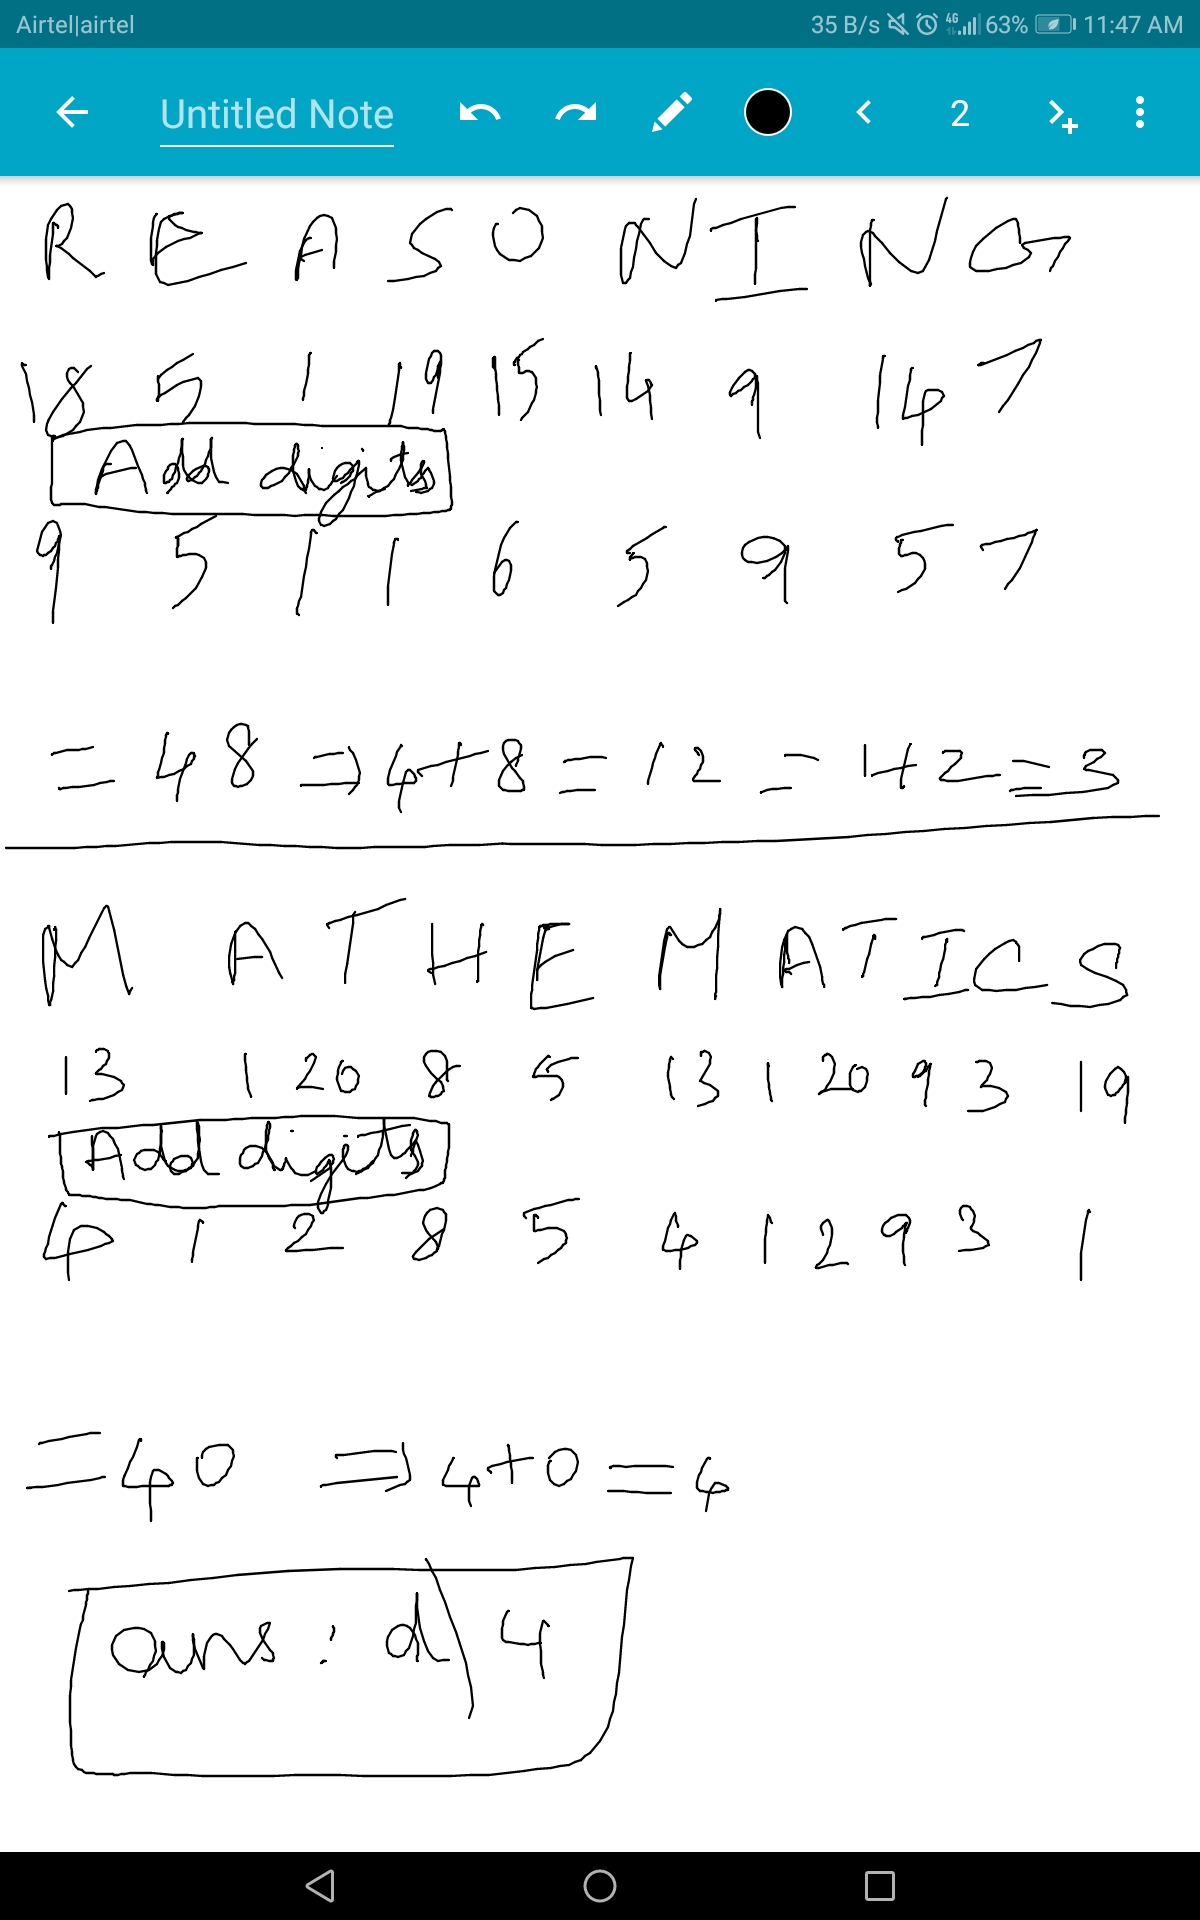 Airtel|airtel 35 B/s 4G 63% 11:47 AM
Untitled Note 2
R E A S O N I N G
18 5 1 19 15 14 9 14 7
Add digits
9 5 1 1 6 5 9 5 7
= 48 ⇒ 4+8 = 12 = 1+2 = 3
M A T H E M A T I C S
13 1 20 8 5 13 1 20 9 3 19
Add digits
4 1 2 8 5 4 1 2 9 3 1
= 40 ⇒ 4+0 = 4
ans : d) 4